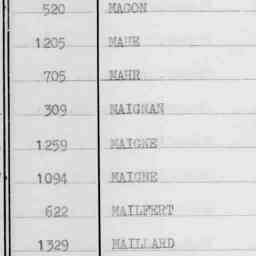 520 MAGON
1205 MAHE
705 MAHR
309 MAIGNAN
1259 MAIGNE
1094 MAIGNE
622 MAILFERT
1329 MAILLARD